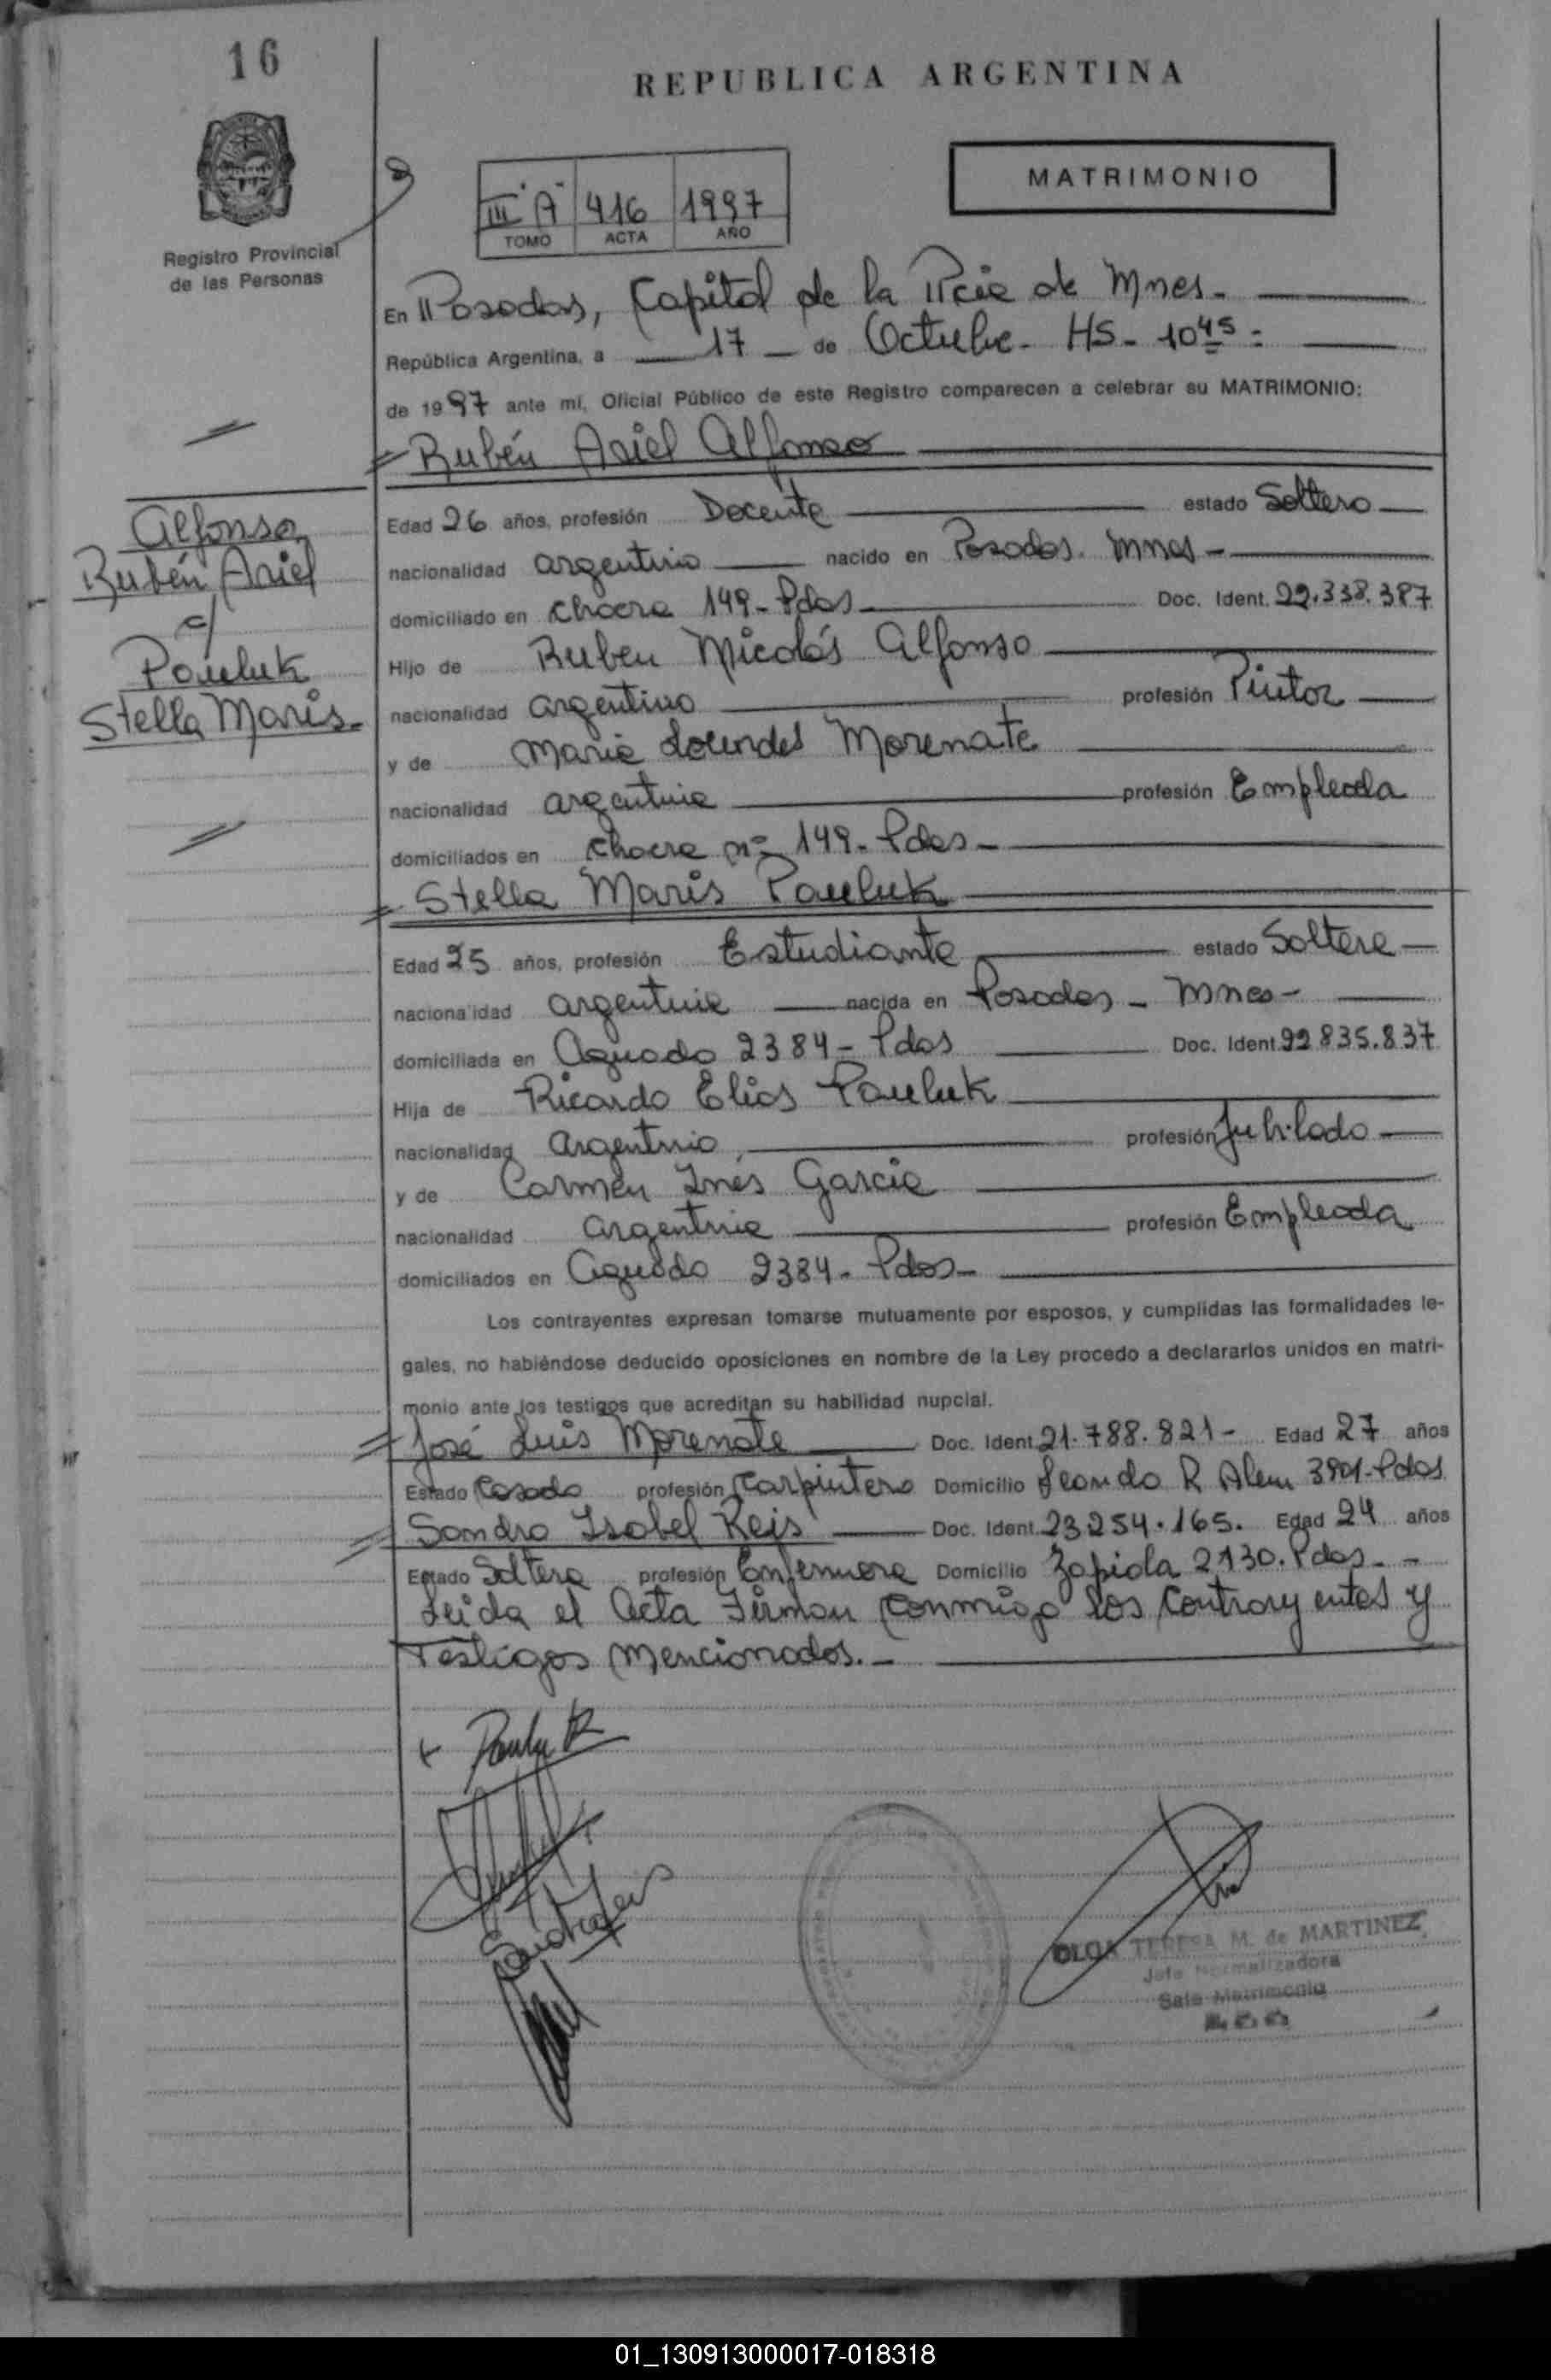 16
REPUBLICA ARGENTINA
MATRIMONIO
III "A" 416 1997
TOMO ACTA AÑO
Registro Provincial
de las Personas
En Posadas, Capital de la Pcia de Mnes. -
República Argentina, a 17 de Octubre - HS - 10 45 -
de 1997 ante mí, Oficial Público de este Registro comparecen a celebrar su MATRIMONIO:
Rubén Ariel Alfonso
Alfonso
Rubén Ariel
c/
Pauluk
Stella Maris -
Edad 26 años, profesión Docente estado Soltero
nacionalidad argentino nacido en Posadas. Mnes -
domiciliado en Chacra 149 - Pdas Doc. Ident. 22.338.387
Hijo de Ruben Nicolás Alfonso
nacionalidad argentino profesión Pintor
y de Maria Lourdes Morenate
nacionalidad argentina profesión Empleada
domiciliados en Chacra nº 149 - Pdas -
Stella Maris Pauluk
Edad 25 años, profesión Estudiante estado Soltera
nacionalidad argentina nacida en Posadas - Mnes -
domiciliada en Aguado 2384 - Pdas Doc. Ident. 22.835.837
Hija de Ricardo Elias Pauluk
nacionalidad Argentino profesión Jubilado
y de Carmen Inés Garcia
nacionalidad argentina profesión Empleada
domiciliados en Aguado 2384 - Pdas -
Los contrayentes expresan tomarse mutuamente por esposos, y cumplidas las formalidades le-
gales, no habiéndose deducido oposiciones en nombre de la Ley procedo a declararlos unidos en matri-
monio ante los testigos que acreditan su habilidad nupcial.
José Luis Morenate Doc. Ident. 21.788.821 - Edad 27 años
Estado Casado profesión Carpintero Domicilio Leandro R Alem 3901 - Pdas
Sandra Isabel Reis Doc. Ident. 23.254.165. Edad 24 años
Estado Soltera profesión Enfermera Domicilio Zapiola 2130. Pdas. -
Leida el Acta Firman conmigo los Contrayentes y
Testigos mencionados. -
Pauluk
OLGA TERESA M. de MARTINEZ
Jefe Normalizadora
Sala Matrimonio
01_130913000017-018318